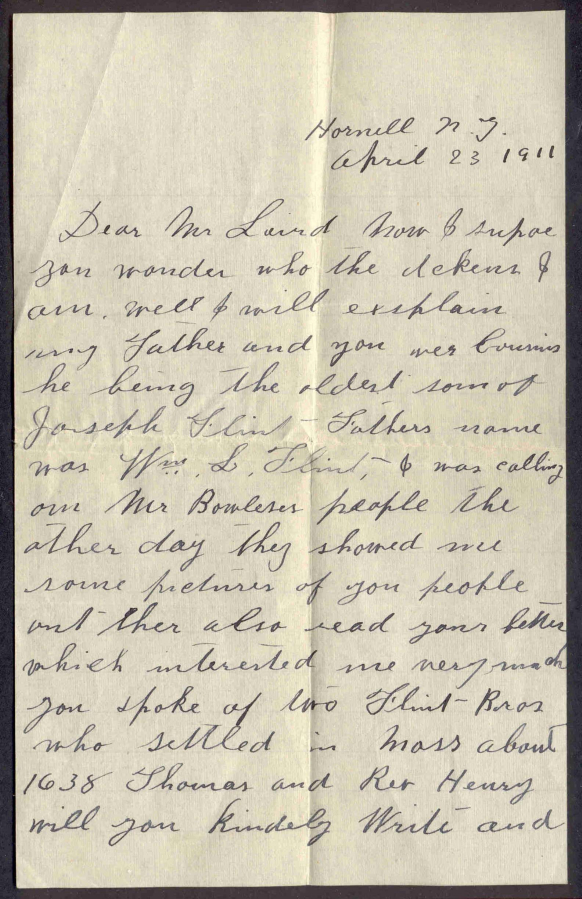 Hornell N.Y.
April 23 1911
Dear Mr Laird Now I supoe
you wonder who the dekens I
am. well I will exsplain
my Father and you wer Cousins
he being the oldest son of
Joseph Flint - Fathers name
was Wm. L. Flint, - I was calling
on Mr Bowleses people the
other day they showed me
some pictures of you people
out ther also read your letter
which interested me very much
you spoke of two Flint Bros
who settled in Mass about
1638 Thomas and Rev Henry
will you kindely Write and